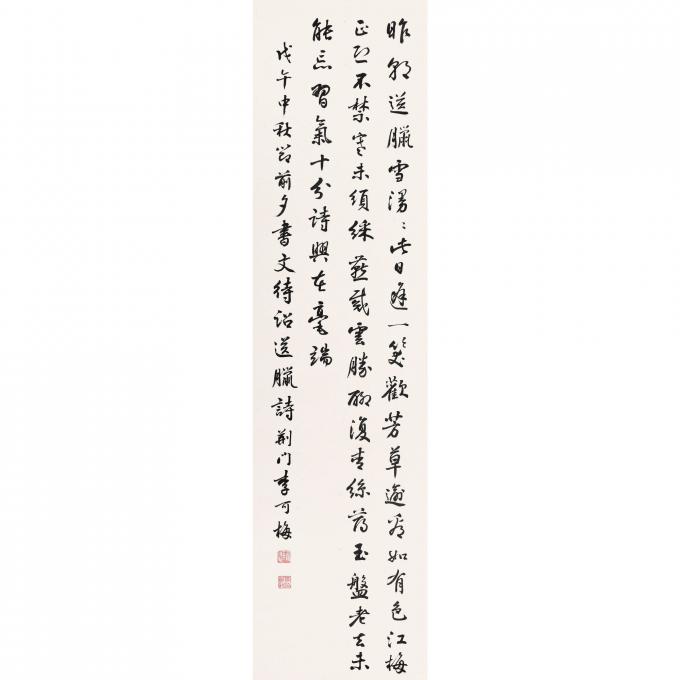 昨朝送臘雪漫〻此日遲一笑歡芳草遊看如有色江梅
正不禁寒未須綵燕戴雲勝聊復青絲薦玉盤老去未
能忘習氣十分詩興在毫端
戊午中秋節前夕書文待詔送臘詩荆门李可梅